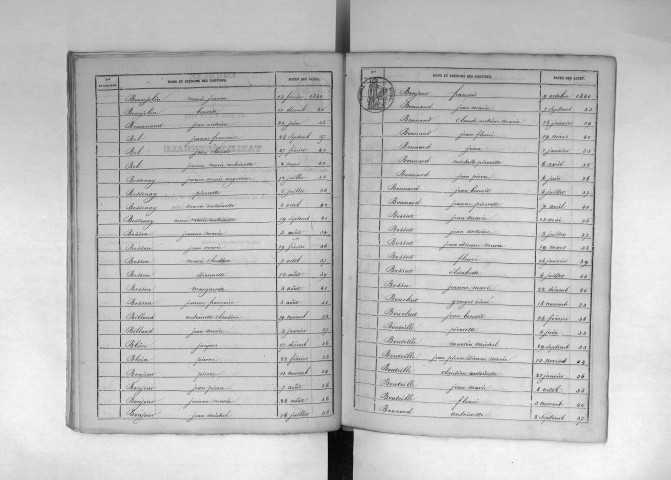 NOMS ET PRÉNOMS DES PARTIES. DATES DES ACTES.
Beaujolin marie jeanne 23 février 1840
Beaujolin benoit 11 décemb
Beaunand jean antoine juin
Bel jeanne francoise 28 septemb 37
Bel jean claude 27 février
Bel jeanne marie antoinette 2 mai
Bessenay jeanne marie juillet
Bessenay pierrette 5 juillet 36
Bessenay marie antoinette 3 octob
Bessenay marie antoinette 19 septemb
Besson jeanne marie 2 août 34
Besson jean marie 19 février 36
Besson marie claudine 2 octob 37
Besson étiennette 12 août 39
Besson marguerite 3 août
Besson jeanne francoise 3 août
Billand antoinette claudine 19 novemb
Billand jean marie 3 janvier 37
Bléin jacques 17 décemb 36
Bléin pierre 23 février 38
Bonjour pierre 11 novemb 34
Bonjour jean pierre 5 août 36
Bonjour jeanne marie 28 août 36
Bonjour jean michel 26 juillet 38
NOMS ET PRÉNOMS DES PARTIES. DATES DES ACTES.
Bonjour francois 9 octobre 1840
Bonnand jean marie 7 septemb 33
Bonnand claude antoine marie 15 janvier 39
Bonnand jean fleuri 19 mars 40
Bonnand jean 1 janvier
Bonnand michelle pierrette 6 avril 35
Bonnand jean pierre 6 juin 36
Bonnand jean benoit 4 juillet 37
Bonnand jeanne pierrette 7 avril 40
Bossut jean marie 12 mai 36
Bossut jean antoine 3 juillet 37
Bossut jean étienne marie 19 mars 38
Bossut fleuri 14 janvier 39
Bossut élisabeth 4 juillet 40
Bossu jeanne marie 25 décemb 40
Bouchut 18 novemb 33
Bouchut jean benoit 24 février 36
Bouteille pierrette 2 juin 33
Bouteille 29 septemb 33
Bouteille jean pierre étienne marie 10 novemb 34
Bouteille claudine antoinette 21 janvier 36
Bouteille jean marie 6 octob 36
Bouteille fleuri 3 novemb 40
Boverand antoinette 8 septemb 37